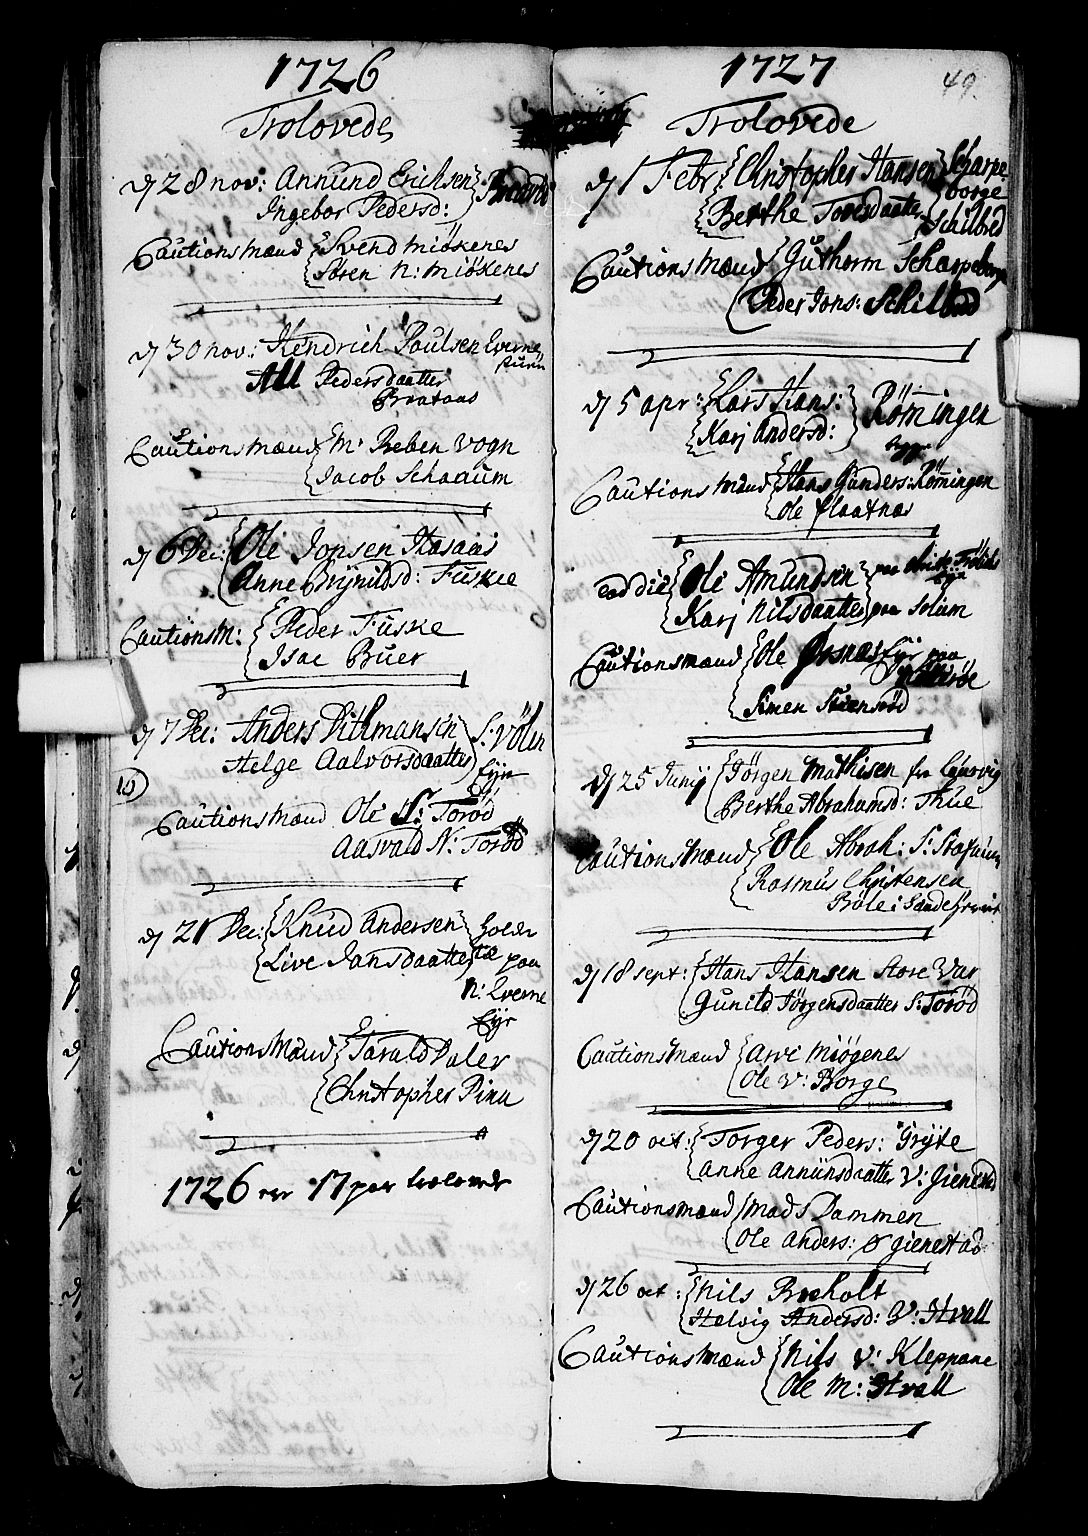 1726
Trolovede
dj 28 nov: Annund Erichsen
Ingebor Pedersd:
Cautions Mænd Svend Miøsenes
Søren N: Miøsenes
dj 30 nov: Hendrich Poulsen Everne
Pedersdaatter
Cautions mænd Mr Reben Vogn
Jacob Schaaum
dj 6 Dec: Ole Jonsen
Anne Brynildsd: Fuske
CautionsM: Peder Fuske
Isac Buer
dj 7 Dec: Anders Dithmansen S: Völen
Helge Aalvorsdaatter Eÿe
16
Cautions mænd Ole S: Torød
Aasvald N: Torød
dj 21 Dec: Knud Andersen
Live Jansdaatter paa
N: Everne
Eÿe
Cautions Mænd Tarald Daler
Christopher Pinn
1726 er 17 par trolovede
1727
49.
Trolovede
dj 1 Febr Christopher Hansen Scharpe-
borge
Berthe Toresdaatter Schilbred
Cautions Mænd Guthorm Scharpeborge
Peder Jons: Schilbred
dj 5 apr: Lars Hans: Römingen
Karj Andersd:
Cautions Mænd Hans Gunders: Römingen
Ole flaatnas
eod die Ole Amundsen paa
Karj Nilsdaatter paa Solum
Cautions mænd Ole Eÿe paa
Simen
dj 25 Junij Jørgen Mathisen fra Laurvig
Berthe Abrahamsd: Thue
Cautions Mænd Ole Abrah: S:
Rasmus Christensen
Bøle i Sandefiord
dj 18 sept: Hans Hansen Store Var
Gunild Jörgensdaatter S: Torød
Cautions Mænd Arve Miøgenes
Ole V: Borge
dj 20 oct: Torger Peders: Grÿte
Anne Annunsdaatter V: Gienestad
Cautions mænd Mads Dammen
Ole Anders: Ø Gienestad
dj 26 oct: Nils Bøeholt
Helvig Andersd: V: Hvall
Cautions Mænd Nils V: Kleppane
Ole M: Hvall